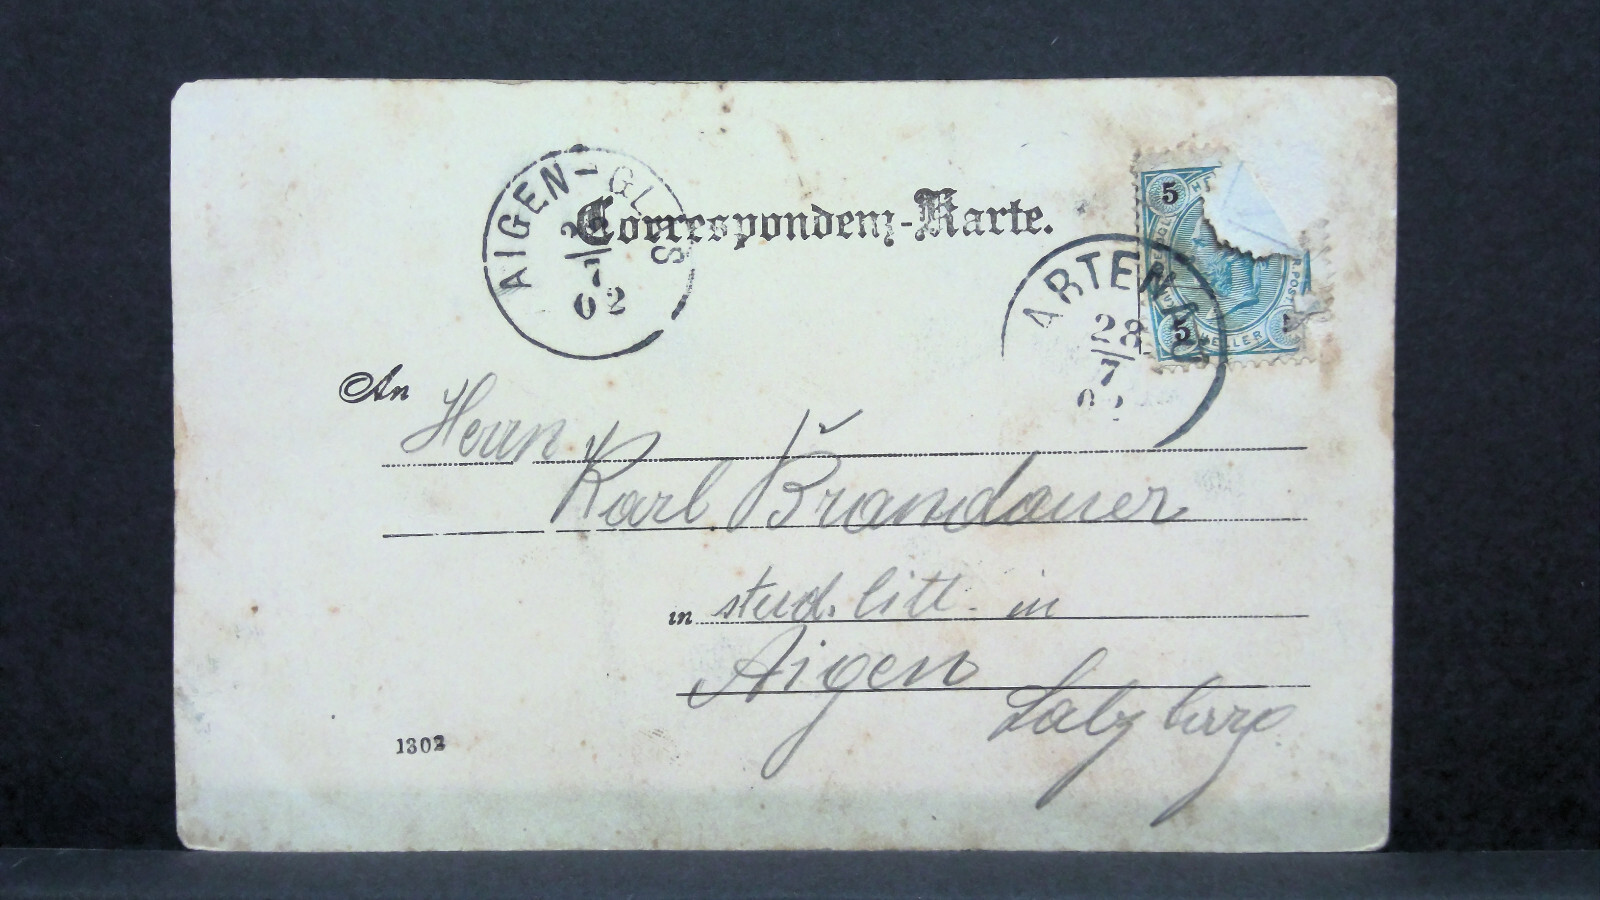 Correspondenz-Karte.
AIGEN-GL S
7
02
5
5
HELLER
ARTENAU
28
7
An Herrn
Karl Brandauer
in stud. litt. in
Aigen
Salzburg
1302